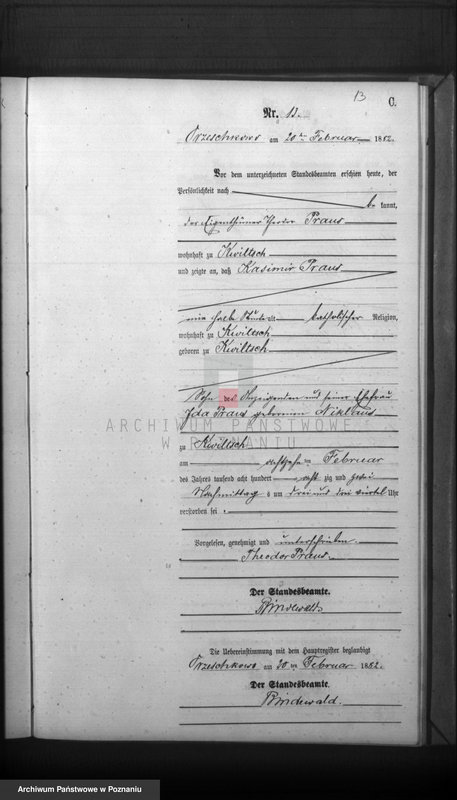 13
C.
Nr. 13.
Orzeschkowo am 20ten Februar 1882.
Vor dem unterzeichneten Standesbeamten erschien heute, der
Persönlichkeit nach
be kannt,
der Eigenthümer Theodor Praus
wohnhaft zu Kwiltsch
und zeigte an, daß Kasimir Praus
eine halbe Stunde alt katholischer Religion,
wohnhaft zu Kwiltsch
geboren zu Kwiltsch
Sohn des Anzeigenden und seiner Ehefrau
Ida Praus geborenen Niklaus
ARCHIWUM PAŃSTWOWE
W POZNANIU
zu Kwiltsch
am achtzehnten Februar
des Jahres tausend acht hundert acht zig und zwei
Nachmittags um drei und drei viertel Uhr
verstorben sei.
Vorgelesen, genehmigt und unterschrieben
Theodor Praus
Der Standesbeamte.
Bindewald
Die Uebereinstimmung mit dem Hauptregister beglaubigt
Orzeschkowo am 20ten Februar 1882.
Der Standesbeamte.
Bindewald.
Archiwum Państwowe w Poznaniu